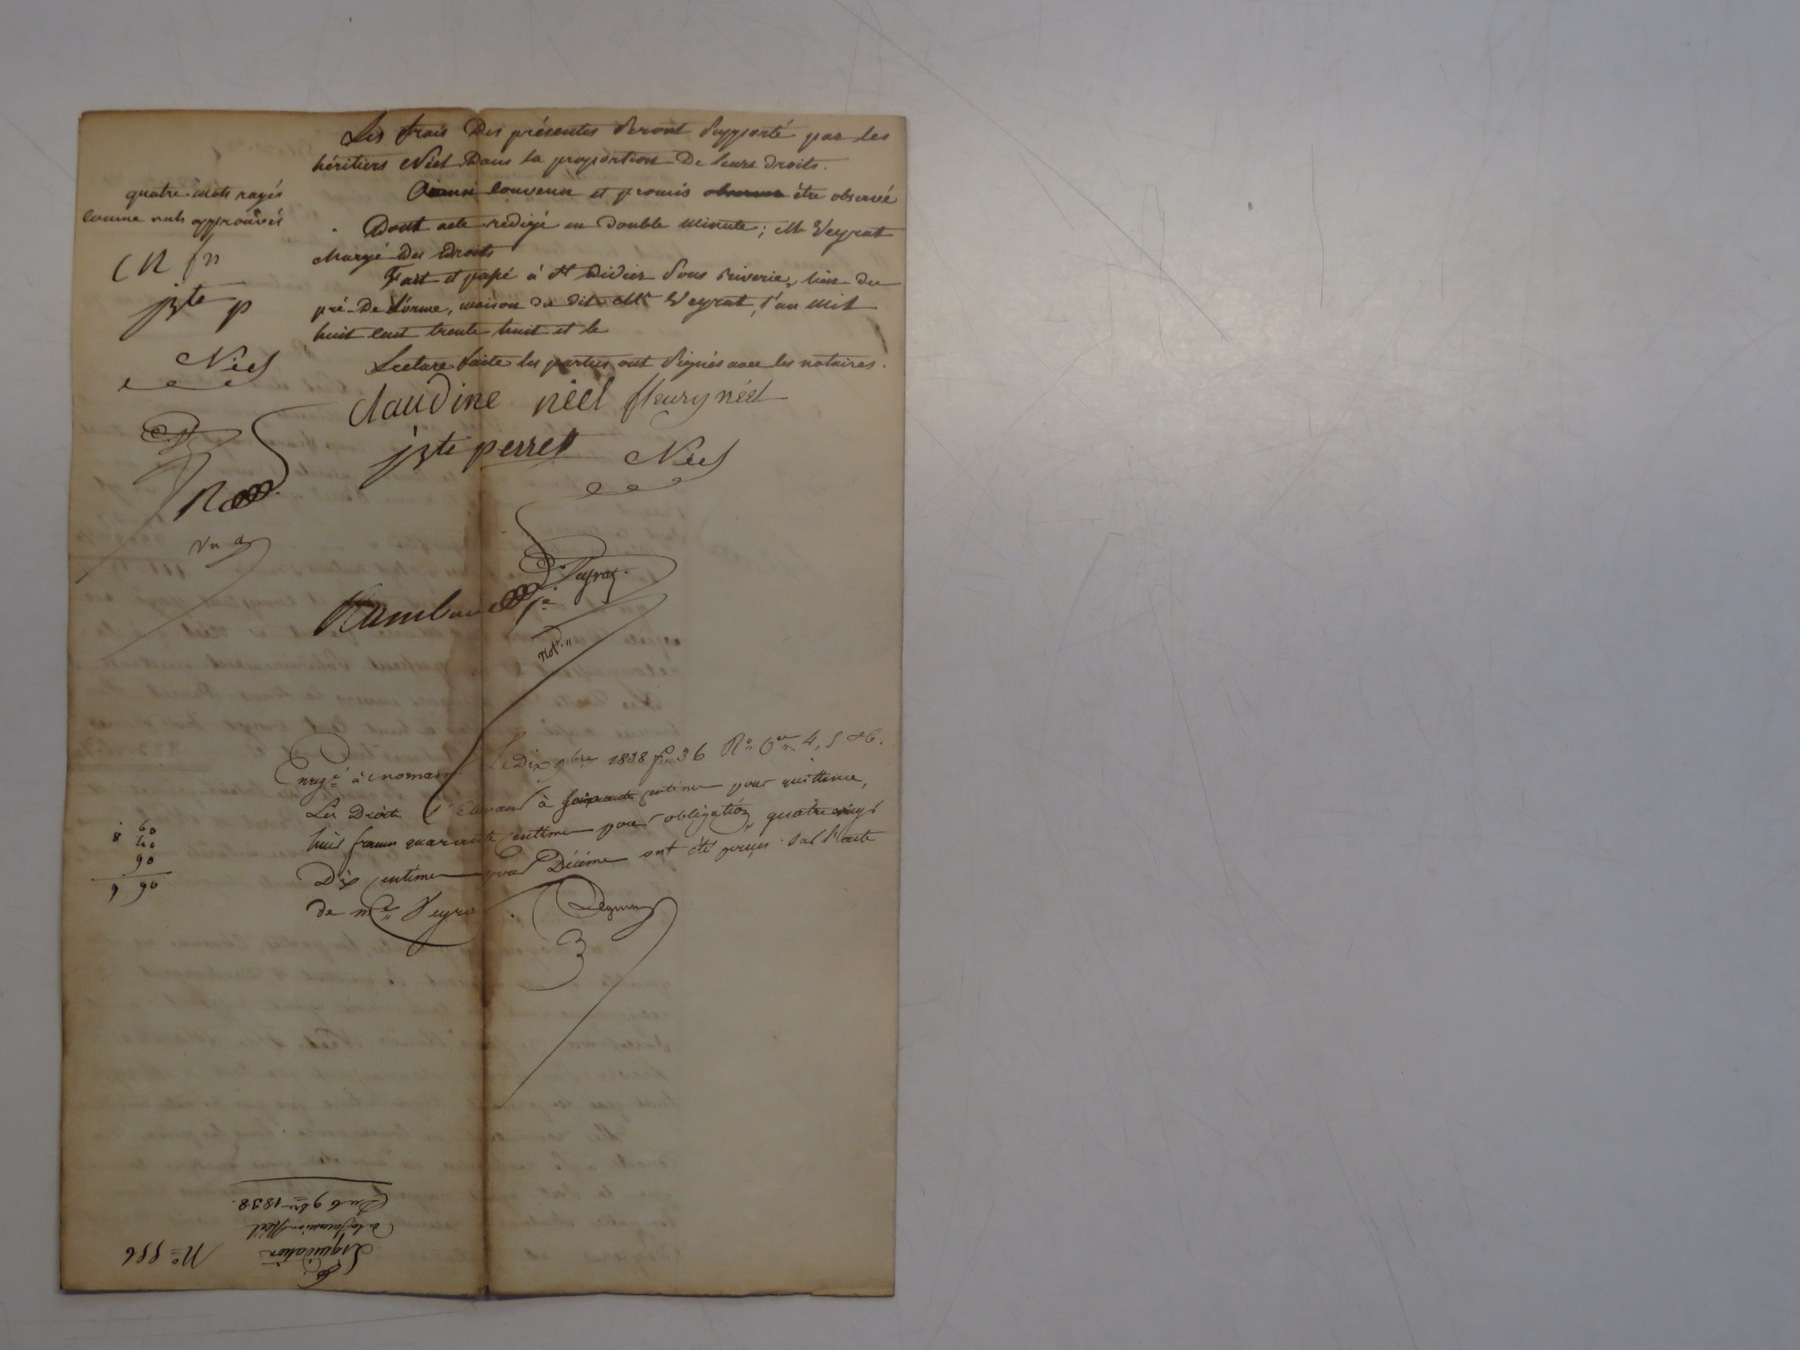 Les frais Des présentes seront supporté par les
héritiers Néel Dans la proportion De leurs droits.
Ainsi convenu et promis observer être observé
Dont acte rédigé en double minute ; Me Veyrat
chargé Des Droits
Fait et passé à St Didier sous riverie, lieu du
pré-De l'orme, maison du dit Me Veyrat, l'an mil
huit cent trente huit et le
Lecture faite les parties ont signés avec les notaires.
quatre mots rayés
comme nuls approuvés
CN fn
jste p
Néel
claudine néel fleury néel
jste perret
Néel
D. Veyrat
not.
Enregé à mornant Le Dix 9bre 1838 fo 36 Ro Ces 4, 5 et 6.
Les Droits s'élevant à soixante centimes pour quittance,
huit francs quarante centimes pour obligation, quatre vingt
Dix centimes pour Décime ont été perçus sur l'acte
de me Veyrat.
60
8 40
90
9 90
No 556
Liquidation
de la succession Néel
Du 6 9bre 1838.